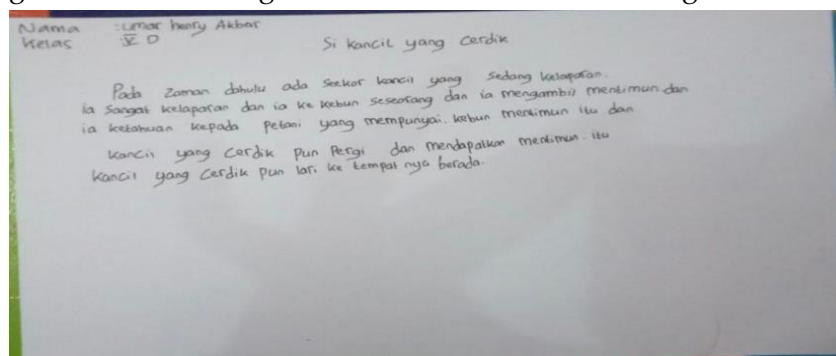 Nama : umar henry Akbar
Kelas : V D
Si kancil yang cerdik
Pada zaman dahulu ada seekor kancil yang sedang kelaparan.
ia sangat kelaparan dan ia ke kebun seseorang dan ia mengambil mentimun dan
ia ketahuan kepada petani yang mempunyai. kebun mentimun itu dan
kancil yang cerdik pun pergi dan mendapatkan mentimun. itu
kancil yang cerdik pun lari ke tempat nya berada.